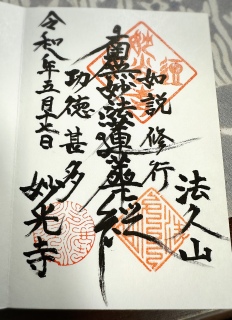 法久山
如説修行
南無妙法蓮華経
功徳甚多
令和八年五月十七日
妙光寺